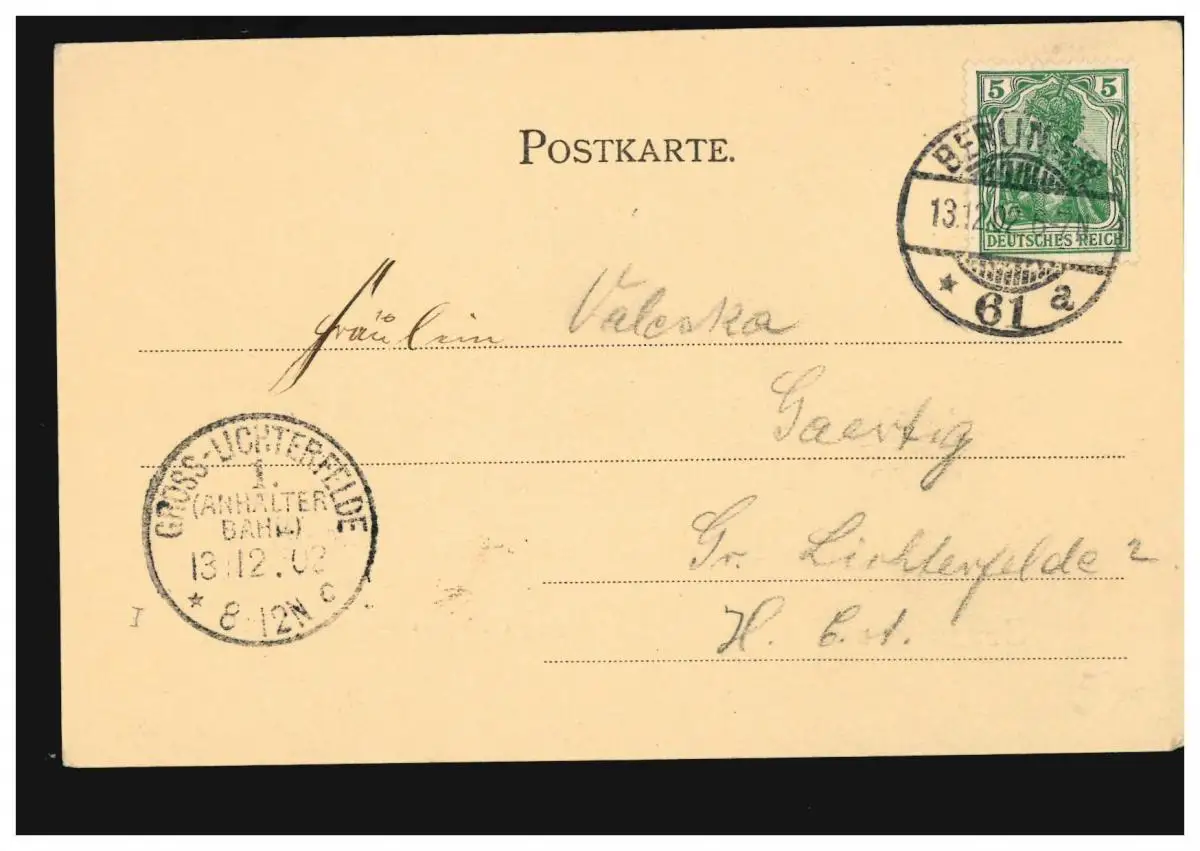 5 5
DEUTSCHES REICH
BERLIN S.W.
13.12.02 6-7N
* 61 a
POSTKARTE.
Fräulein Valeska
Gaertig
Gr. Lichterfelde
H.
GROSS-LICHTERFELDE
1.
(ANHALTER
BAHN)
13.12.02
* 8-12N c